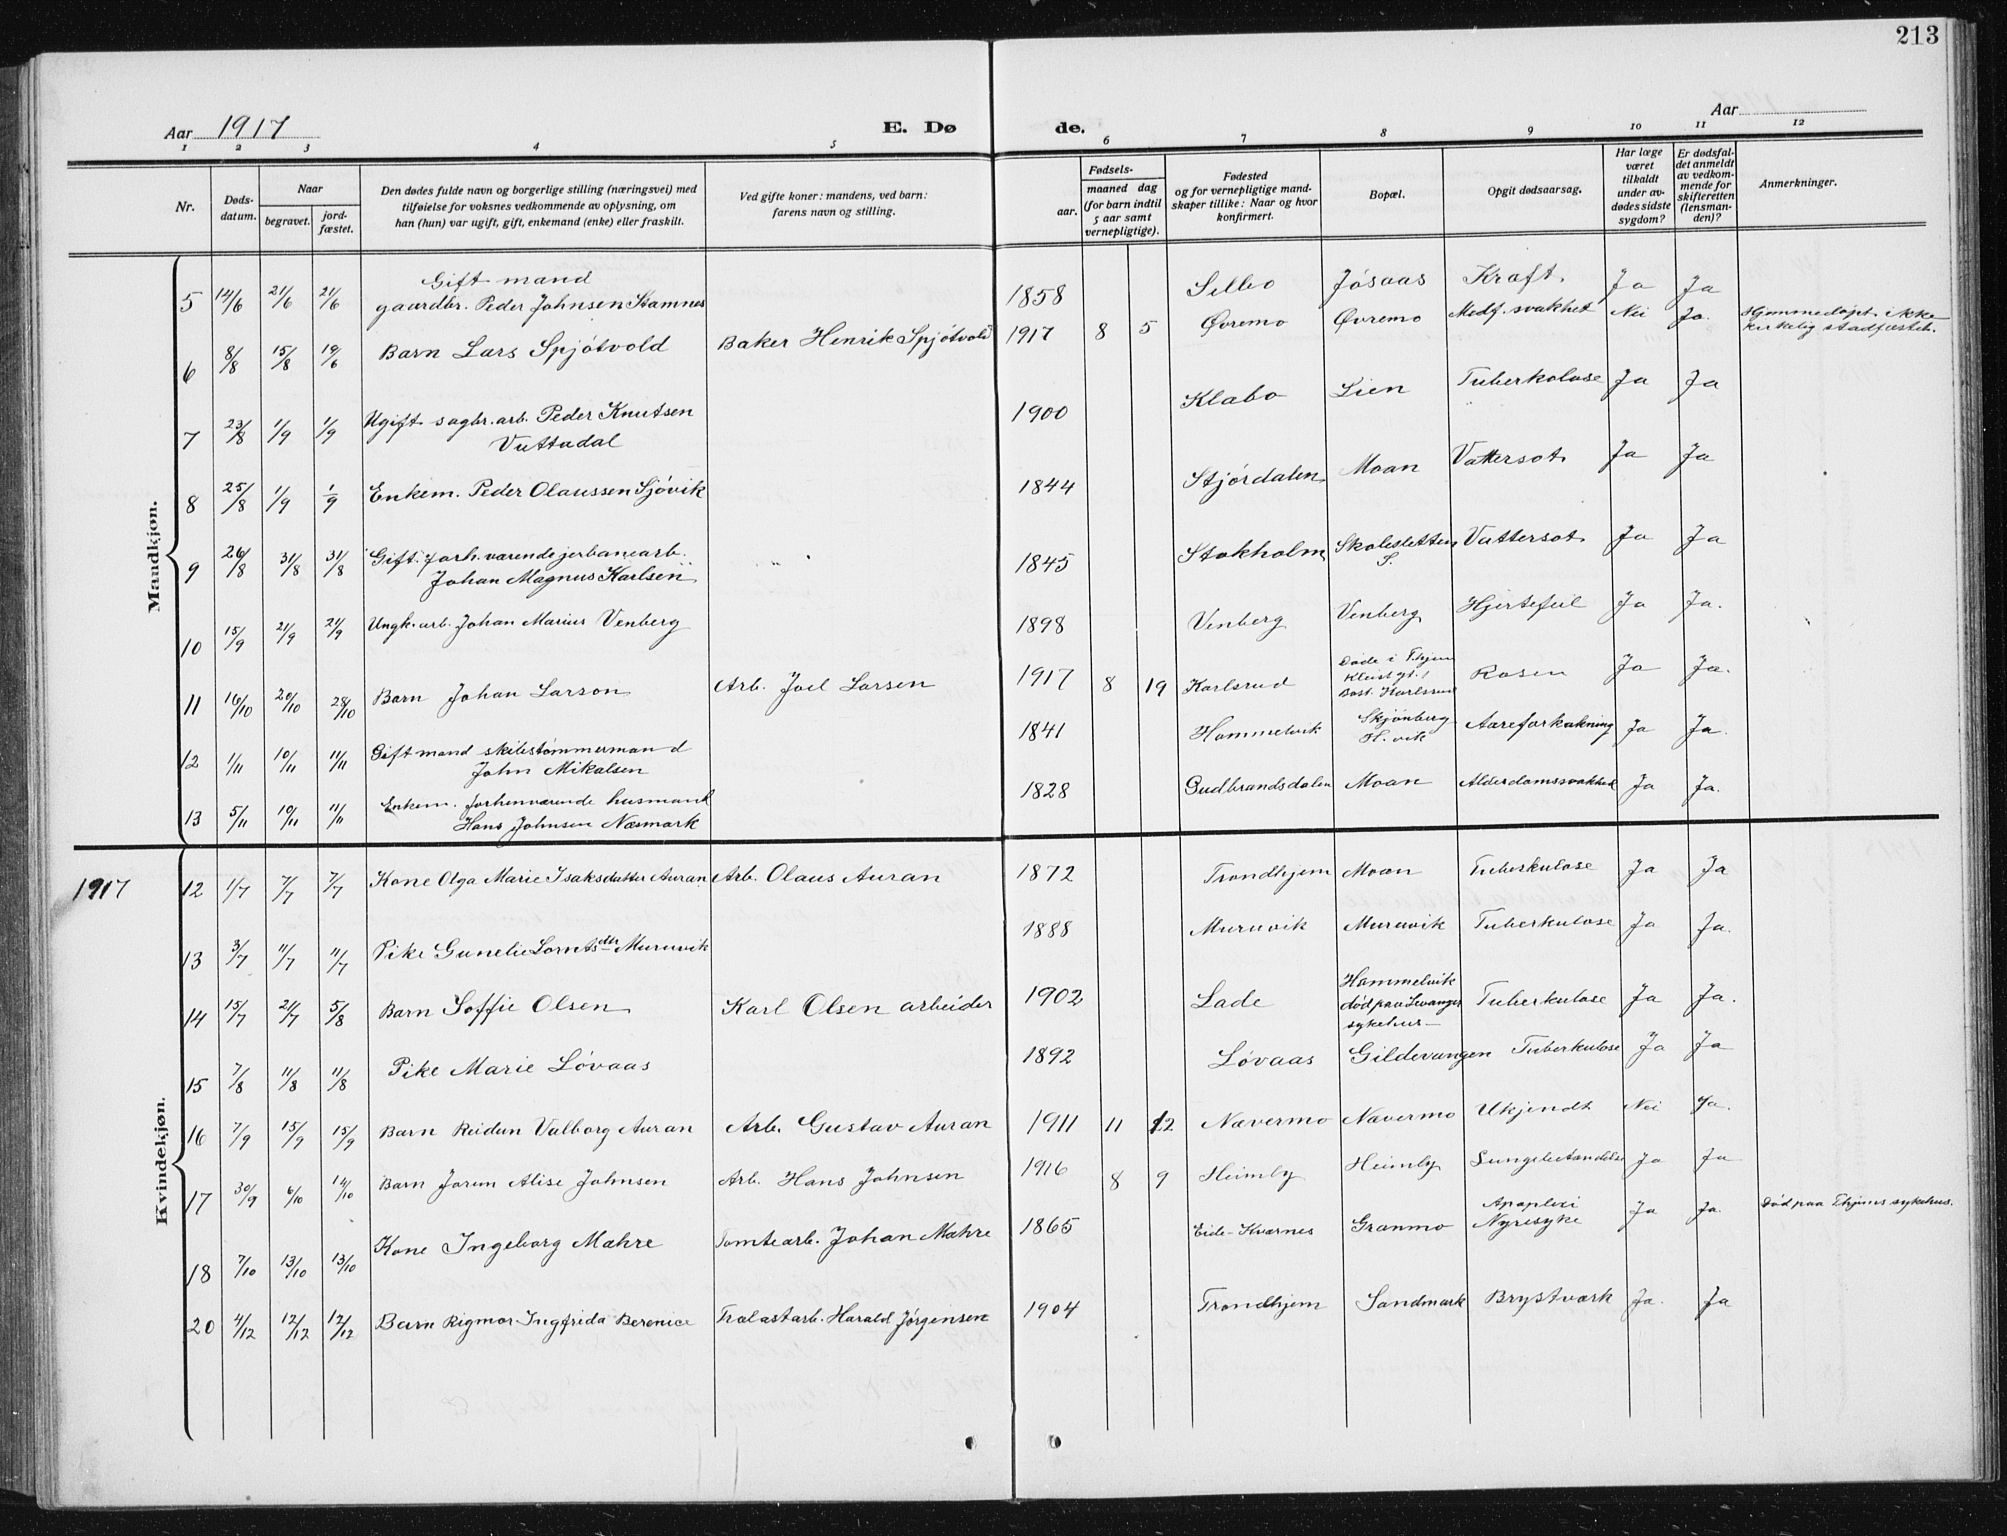 213
Aar 1917
E. Dø
de.
Aar
1 2 3 4 5 6 7 8 9 10 11 12
Nr.
Døds-
datum.
Naar
begravet.
jord-
fæstet.
Den dødes fulde navn og borgerlige stilling (næringsvei) med
tilføielse for voksnes vedkommende av oplysning, om
han (hun) var ugift, gift, enkemand (enke) eller fraskilt.
Ved gifte koner: mandens, ved barn:
farens navn og stilling.
Fødsels-
aar.
maaned dag
(for barn indtil
5 aar samt
vernepligtige).
Fødested
og for vernepligtige mand-
skaper tillike: Naar og hvor
konfirmert.
Bopæl.
Opgit dødsaarsag.
Har læge
været
tilkaldt
under av-
dødes sidste
sygdom?
Er dødsfal-
det anmeldt
av vedkom-
mende for
skifteretten
(lensman-
den)?
Anmerkninger.
Mandkjøn.
5 14/6 21/6 21/6 Gift mand
gaardbr. Peder Johnsen Stamnes 1858 Selbo Jøsaas Kræft. Ja Ja
6 8/8 15/8 19/6 Barn Lars Spjøtvold Baker Henrik Spjøtvold 1917 8 5 Øvremo Øvremo Medf. svakhet Nei Ja. Hjemmedøpt, ikke
kirkelig stadfæstet.
7 23/8 1/9 1/9 Ugift sagbr.arb. Peder Knutsen
Vuttudal 1900 Klæbo Lien Tuberkolose Ja Ja
8 25/8 1/9 1/9 Enkem. Peder Olaussen Sjøvik 1844 Stjørdalen Moan Vattersot Ja Ja
9 26/8 31/8 31/8 Gift. forh. værende jerbanearb.
Johan Magnus Karlsen 1845 Stokholm Skolesletten
S. Vattersot Ja Ja
10 15/9 21/9 21/9 Ungk. arb. Johan Marius Venberg 1898 Venberg Venberg Hjertefeil Ja Ja.
11 16/10 20/10 28/10 Barn Johan Larson Arb. Joel Larsen 1917 8 19 Karlsrud Døde i Thjem
Bost. Karlsrud Rosen Ja Ja.
12 1/11 10/11 11/11 Gift mand skibstømmermand
John Mikalsen 1841 Hommelvik Skjønberg
H.vik Aareforkalkning Ja Ja.
13 5/11 10/11 11/11 Enkem. forhenværende husmand
Hans Johnsen Næsmark 1828 Gudbrandsdalen Moan Alderdomssvakhet Ja Ja.
1917
Kvindekjøn.
12 1/7 7/7 7/7 Kone Olga Marie Isaksdatter Auran Arb. Olaus Auran 1872 Trondhjem Moan Tuberkulose Ja Ja
13 3/7 11/7 11/7 Pike Gunelie Lorntsdtr Muruvik 1888 Muruvik Muruvik Tuberkulose Ja Ja.
14 15/7 21/7 5/8 Barn Soffie Olsen Karl Olsen arbeider 1902 Lade Hommelvik
død paa Levanger
sykehus Tuberkulose Ja Ja.
15 7/8 11/8 11/8 Pike Marie Løvaas 1892 Løvaas Gildevangen Tuberkulose Ja Ja
16 7/9 15/9 15/9 Barn Reidun Valborg Auran Arb. Gustav Auran 1911 11 12 Nævermo Nævermo Ukjendt Nei Ja.
17 30/9 6/10 14/10 Barn Jorun Alise Johnsen Arb. Hans Johnsen 1916 8 9 Heimly Heimly Lungebetændelse Ja Ja
18 7/10 13/10 13/10 Kone Ingeborg Mæhre Tomtearb. Johan Mæhre 1865 Eide-Kværnes Granmo Apoplexi
Nyresyke Ja Ja. Død paa Thjems sykehus.
20 4/12 12/12 12/12 Barn Rigmor Ingfrida Berenice Trælastarb. Harald Jørgensen 1904 Trondhjem Sandmark Brystværk Ja. Ja